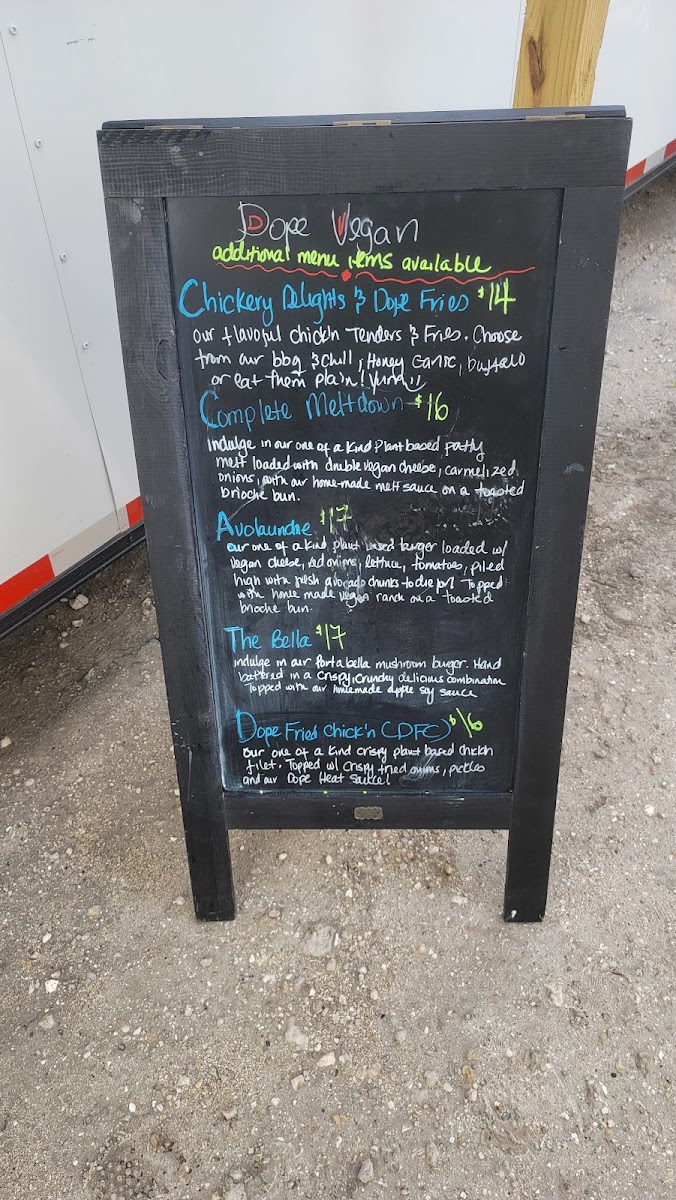 Dope Vegan
additional menu items available
Chickery Delights & Dope Fries $14
our flavoful chick'n Tenders & Fries. Choose
from our bbq & chill, Honey Garlic, buffalo
or eat them plain! Yum
Complete Meltdown $16
Indulge in our one of a kind Plant based patty
melt loaded with double vegan cheese, carmelized
onions, with our home-made melt sauce on a toasted
brioche bun.
Avolaunche $17
our one of a kind plant based burger loaded w/
vegan cheese, red onions, lettuce, tomatoes, piled
high with fresh avocado chunks to die for! Topped
with home made vegan ranch on a Toasted
brioche bun.
The Bella $17
Indulge in our Portabella mushroom burger. Hand
battered in a crispy, crunchy delicious combination
Topped with our homemade apple soy sauce
Dope Fried Chick'n (DFC) $16
our one of a kind crispy plant based chickn
filet. Topped w/ crispy fried onions, pickles
and our Dope Heat Sauce!